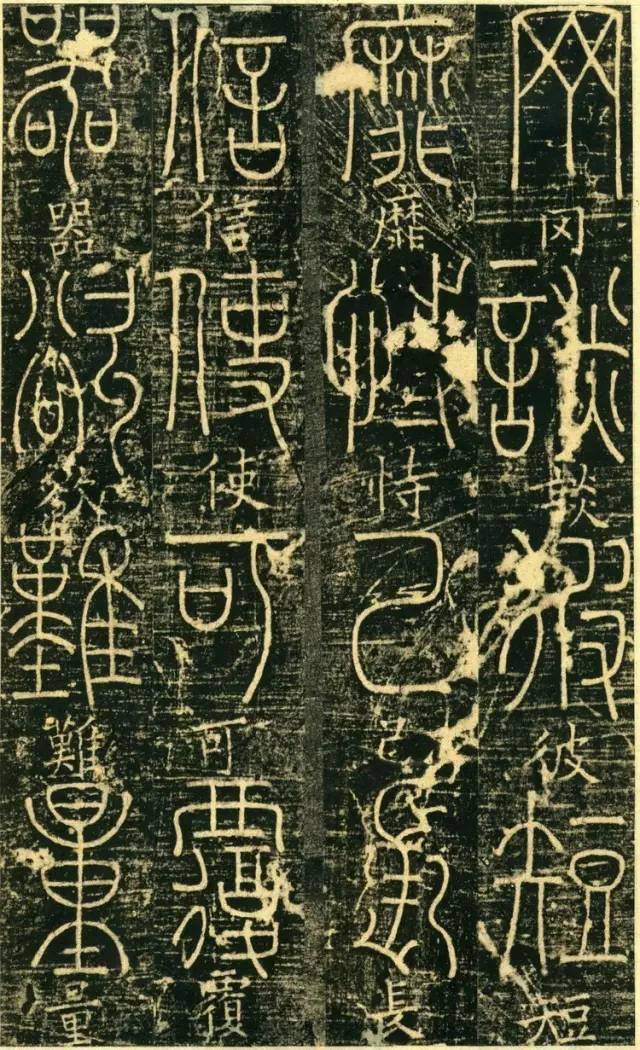 网罔談談彼彼短短
靡靡恃恃己己長長
信信使使可可覆覆
器器欲欲難難量量